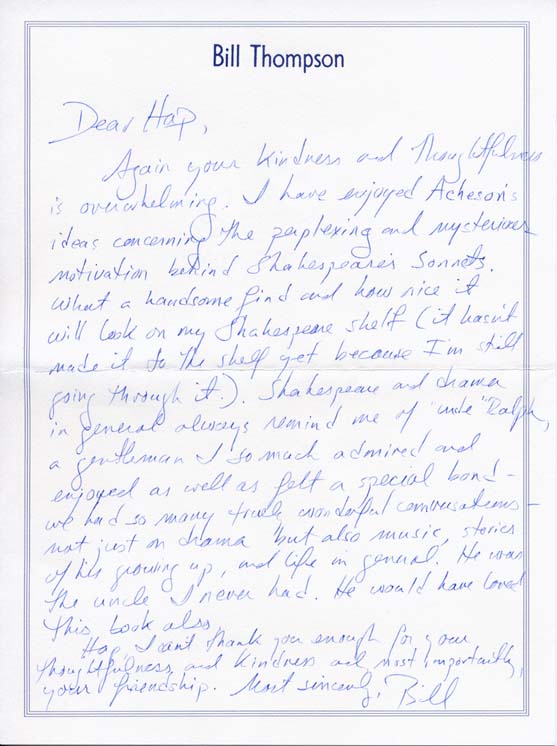 Bill Thompson
Dear Hap,
Again your kindness and thoughtfulness
is overwhelming. I have enjoyed Acheson's
ideas concerning the perplexing and mysterious
motivation behind Shakespeare's Sonnets.
What a handsome find and how nice it
will look on my Shakespeare shelf (it hasn't
made it to the shelf yet because I'm still
going through it.). Shakespeare and drama
in general always remind me of "uncle" Ralph,
a gentleman I so much admired and
enjoyed as well as felt a special bond –
we had so many truly wonderful conversations –
not just on drama but also music, stories
of his growing up, and life in general. He was
the uncle I never had. He would have loved
this book also.
Hap, I can't thank you enough for your
thoughtfulness and kindness and most importantly,
your friendship. Most sincerely, Bill